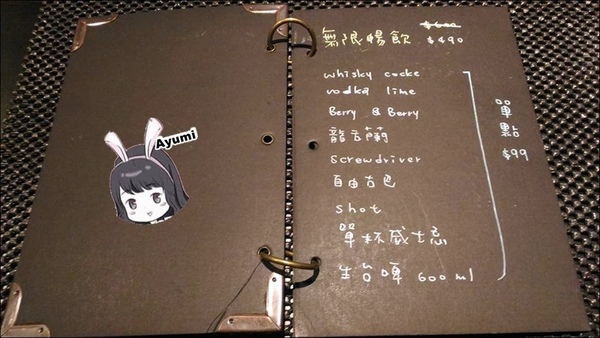 Ayumi
無限暢飲 $600 $490
whisky cocke
vodka lime
Berry & Berry
龍舌蘭
screwdriver
自由古巴
shot
單杯威士忌
生台啤 600ml
單點 $99